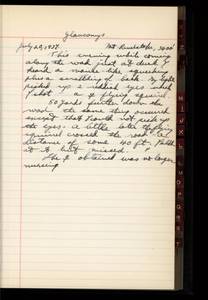 Glaucomys
July 29, 1937. Mt Rucksticker, 3600'
This evening while coming
along the road just at dusk I
heard a mouse-like squeaking
plus a scratching of bark. My light
picked up 2 reddish eyes which
I shot - a ♀ flying squirrel
50 yards further down the
road the same thing occurred
except that I could not pick up
the eyes. a little later the flying
squirrel crossed the road a
distance of some 40 ft.
at it but missed.
The ♀ obtained was no longer
nursing
H
I
J
K
L
M
N
O
P
Q
R
S
T